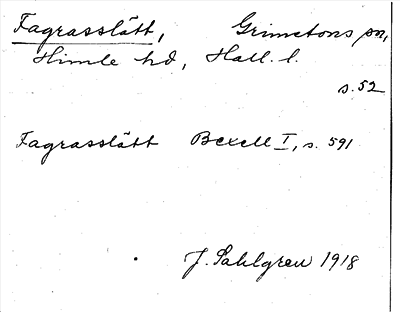 Fagrasslätt, Grimetons sn,
Himle hd, Hall. l.
s. 52
Fagrasslätt Bexell I, s. 591
J. Sahlgren 1918